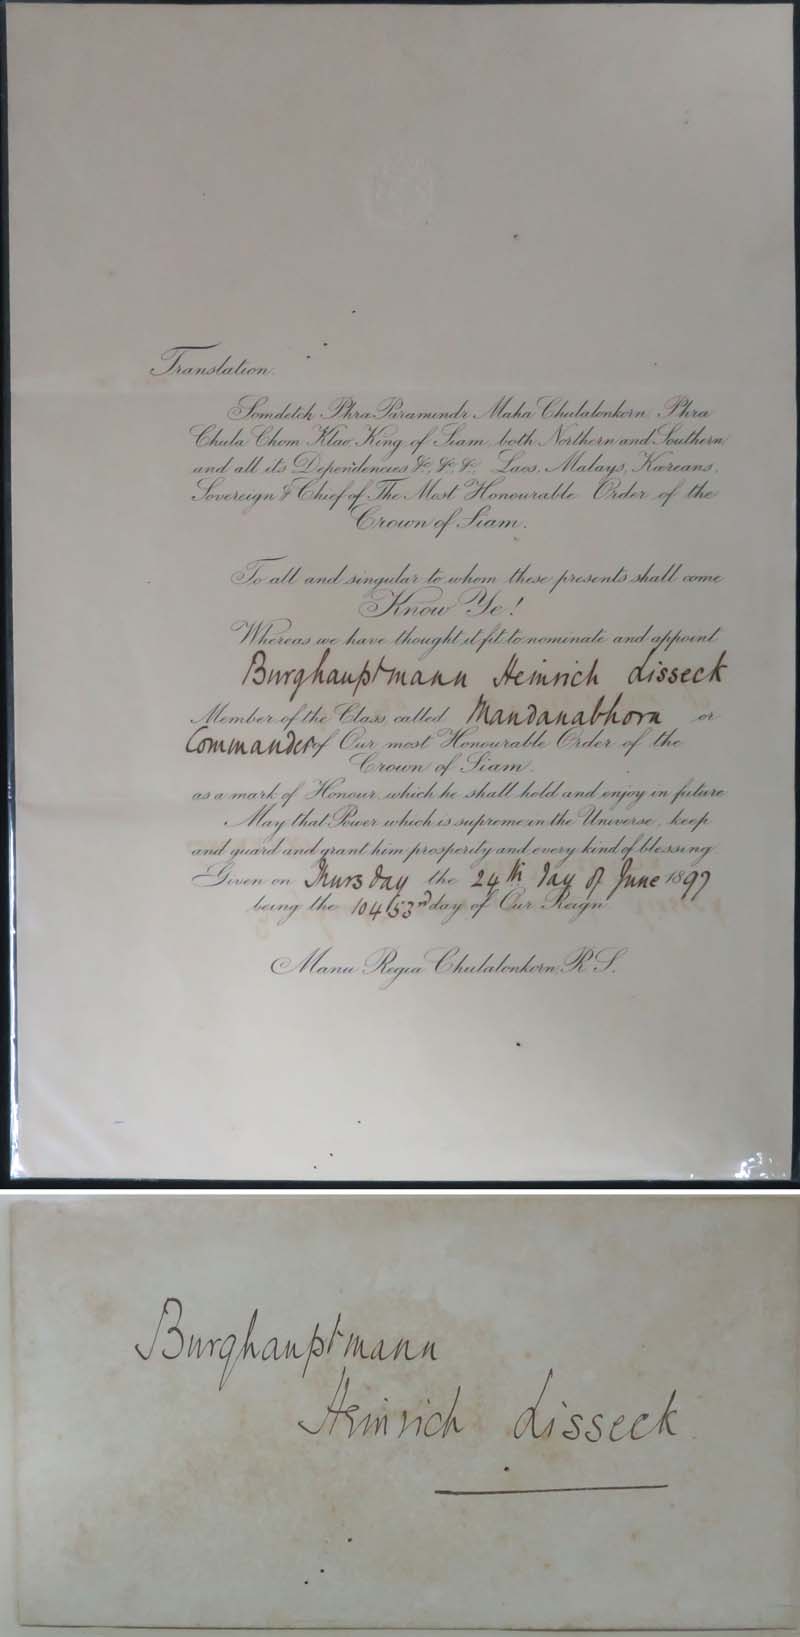 Translation.
Somdetch Phra Paramindr Maha Chulalonkorn, Phra
Chula Chom Klao, King of Siam, both Northern and Southern,
and all its Dependencies &c, &c, &c. Laos, Malays, Kareans,
Sovereign & Chief of The Most Honourable Order of the
Crown of Siam.
To all and singular to whom these presents shall come
Know Ye!
Whereas we have thought it fit to nominate and appoint
Burghauptmann Heinrich Lisseck
Member of the Class, called Mandanabhorn or
Commander of Our most Honourable Order of the
Crown of Siam.
as a mark of Honour, which he shall hold and enjoy in future
May that Power which is supreme in the Universe, keep
and guard and grant him prosperity and every kind of blessing.
Given on Thursday the 24th day of June 1897
being the 10453rd day of Our Reign
Manu Regia Chulalonkorn, R. S.
Burghauptmann
Heinrich Lisseck